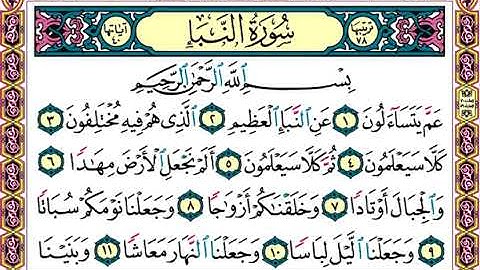 ترتيبها ٧٨ سُورَةُ النَّبَإِ آياتها ٤٠
بِسْمِ اللَّهِ الرَّحْمَٰنِ الرَّحِيمِ
عَمَّ يَتَسَاءَلُونَ ١ عَنِ النَّبَإِ الْعَظِيمِ ٢ الَّذِي هُمْ فِيهِ مُخْتَلِفُونَ ٣
كَلَّا سَيَعْلَمُونَ ٤ ثُمَّ كَلَّا سَيَعْلَمُونَ ٥ أَلَمْ نَجْعَلِ الْأَرْضَ مِهَادًا ٦
وَالْجِبَالَ أَوْتَادًا ٧ وَخَلَقْنَاكُمْ أَزْوَاجًا ٨ وَجَعَلْنَا نَوْمَكُمْ سُبَاتًا
٩ وَجَعَلْنَا اللَّيْلَ لِبَاسًا ١٠ وَجَعَلْنَا النَّهَارَ مَعَاشًا ١١ وَبَنَيْنَا